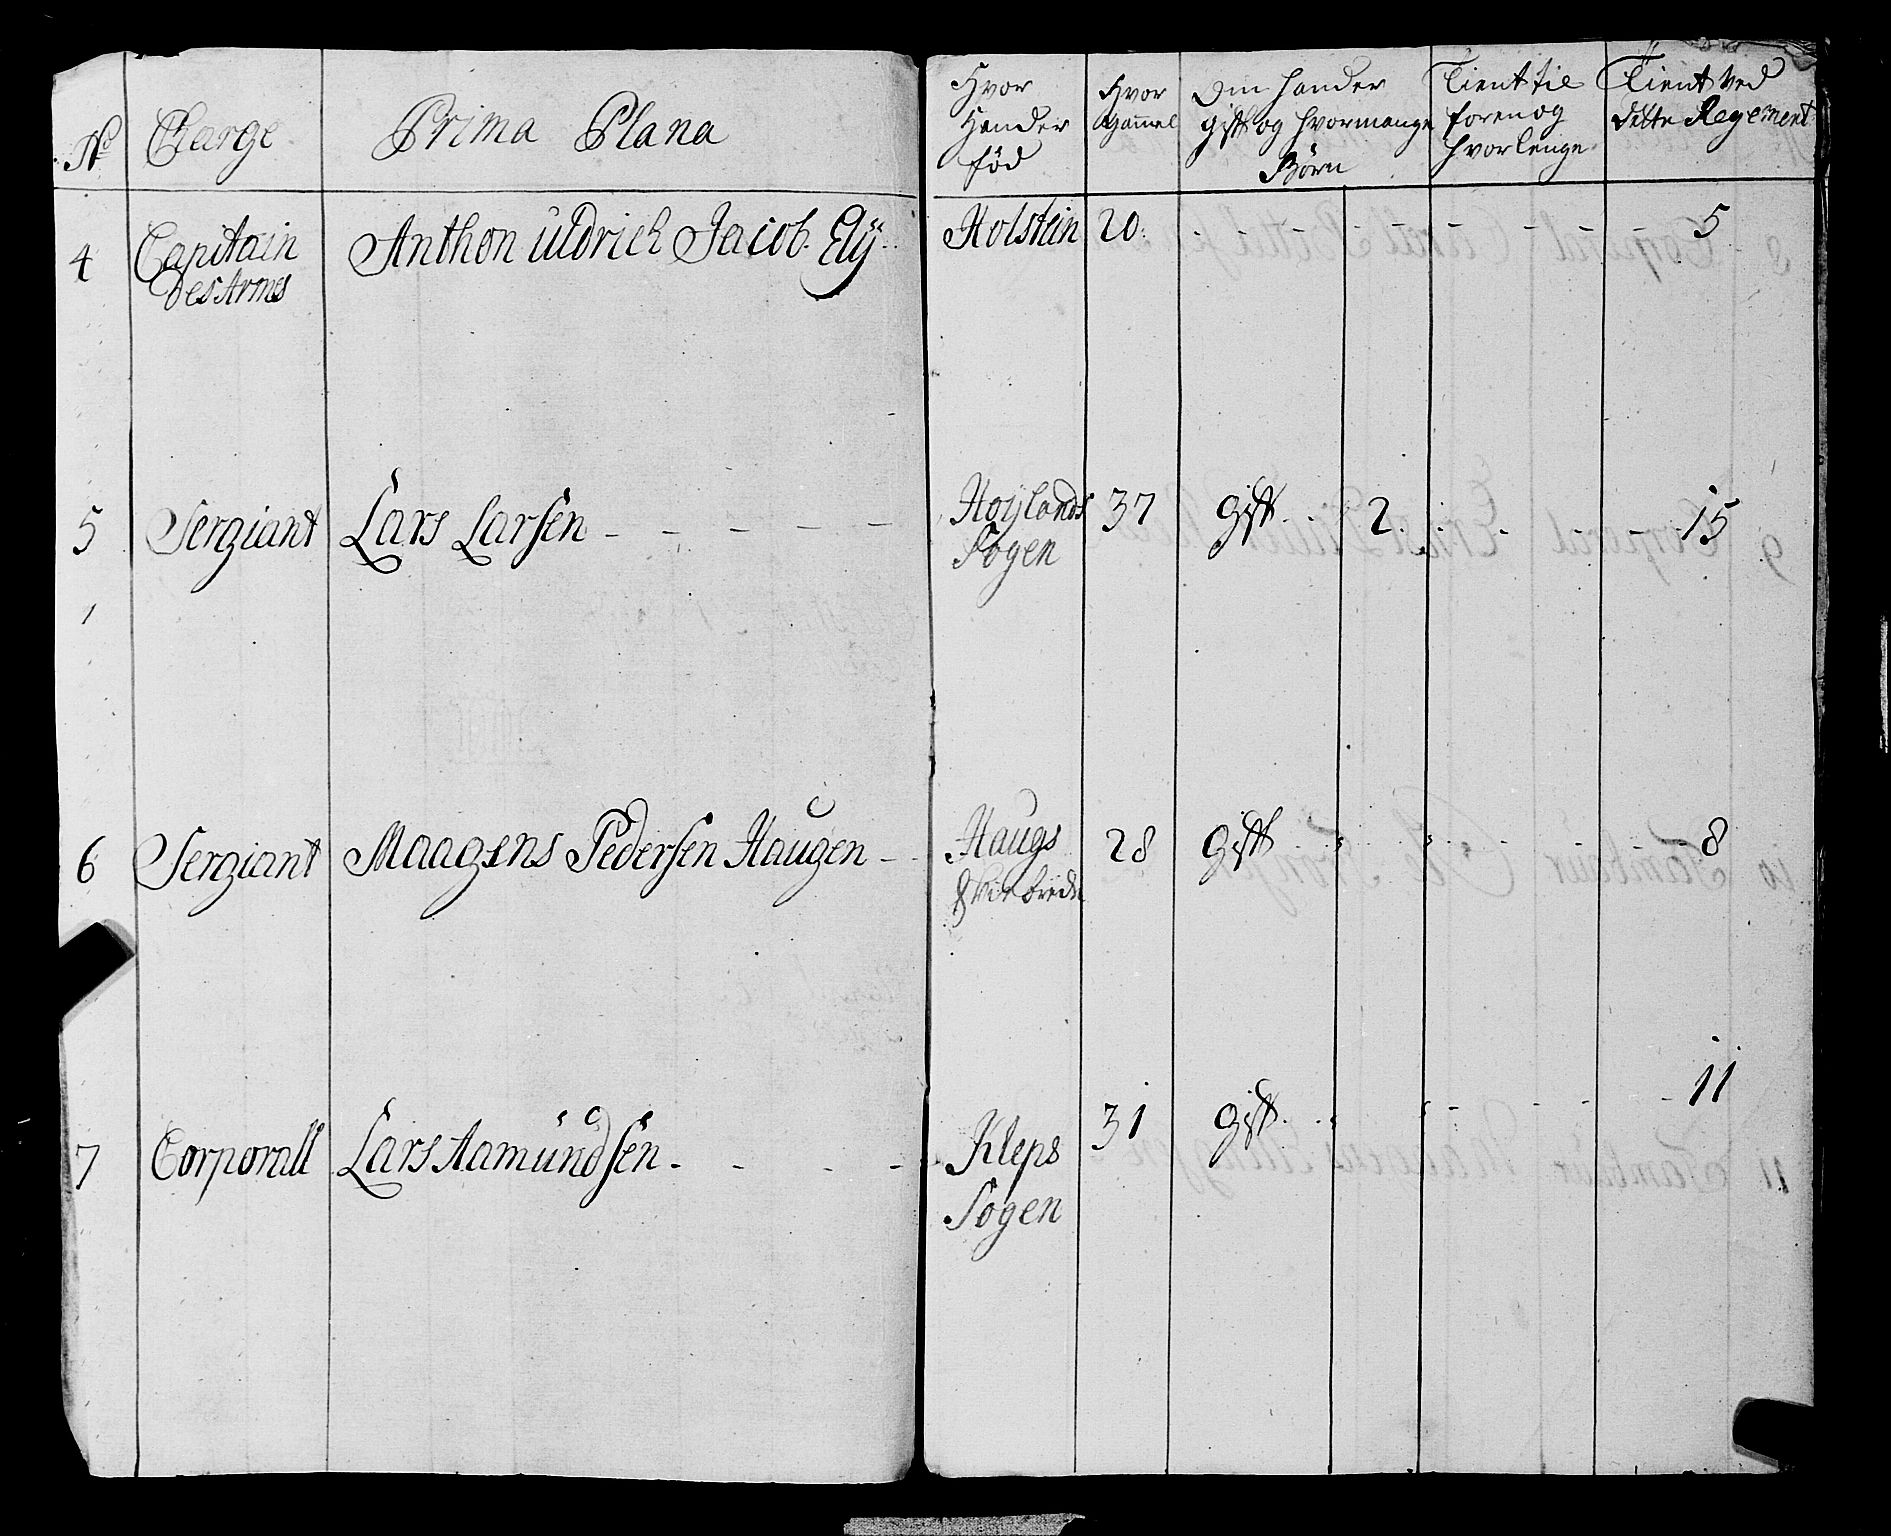 No Charge Prima Plana
Hvor
Hander
fød
Hvor
Gammel
Om hander
gift og hvormange
Børn
Tient til
foren og
hvorlenge
Tient ved
dette Regement
4 Capitain
des Armes
Anthon Uldrich Jacob Elÿ
Holstein 20 5
5 Sergiant Lars Larsen
Hoÿlands
Sogen
37 Gift 2 15
6 Sergiant Maagens Pedersen Haugen
Haugs
28 Gift 8
7 Corporall Lars Aamundsen
Kleps
Sogen
31 Gift 11